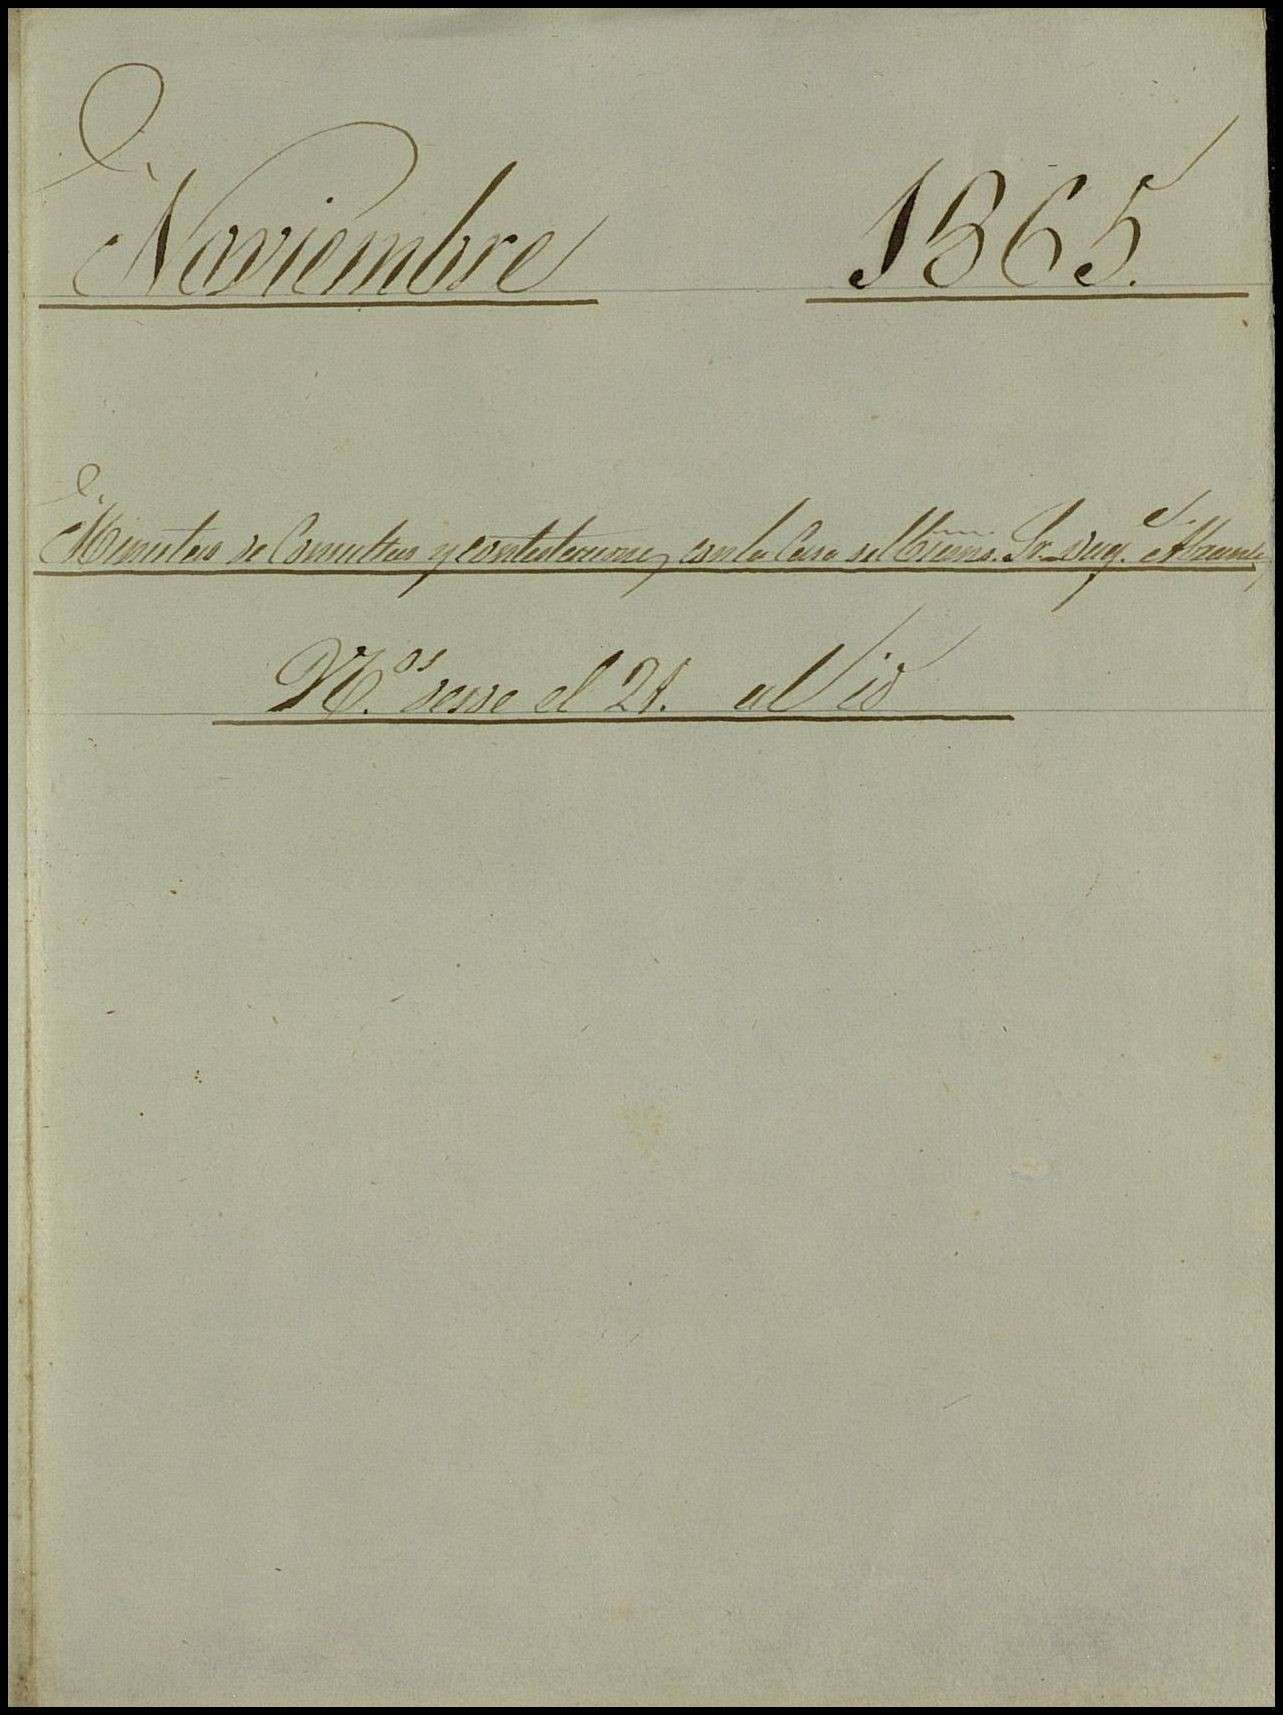 Noviembre 1865.
Minutas de Consultas y contestaciones con la Casa del Excmo. Sr. Duq.e Abrantes
N.os desde el 21. al